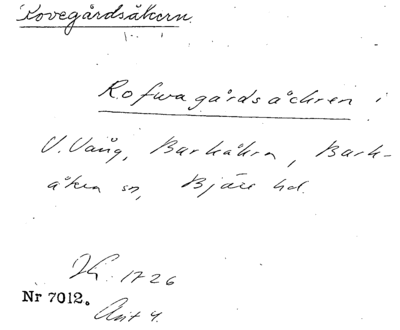 Rovegårdsåkern.
Rofwagårdsåckren i
V. Vång, Barkåkra, Bark-
åkra sn, Bjäre hd.
1726
Nr 7012.